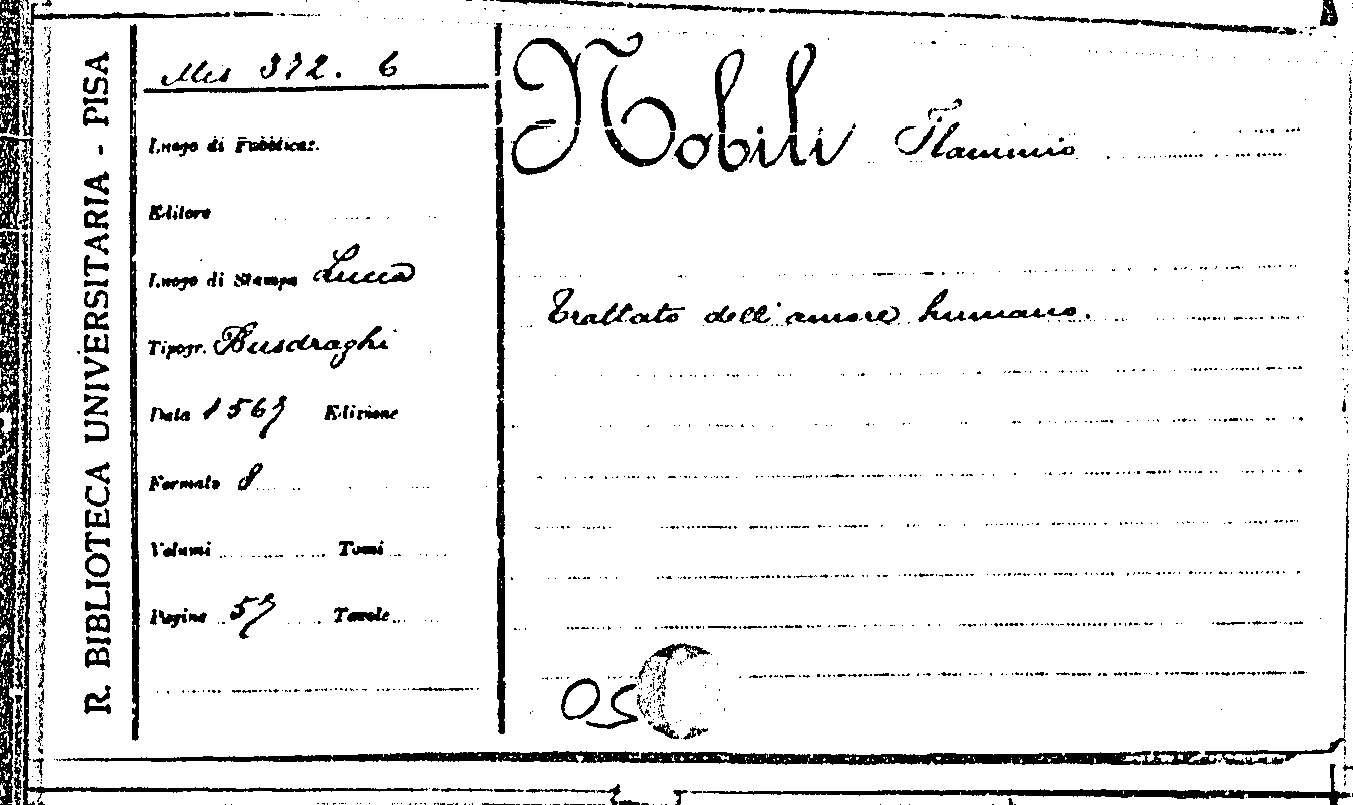 R. BIBLIOTECA UNIVERSITARIA - PISA
Mis 372. 6
Luogo di Pubblicaz.
Editore
Luogo di Stampa Lucca
Tipogr. Busdraghi
Data 1567 Edizione
Formato 8
Volumi Tomi
Pagine 57 Tavole
Nobili Flaminio
Trattato dell'amore humano.
OS